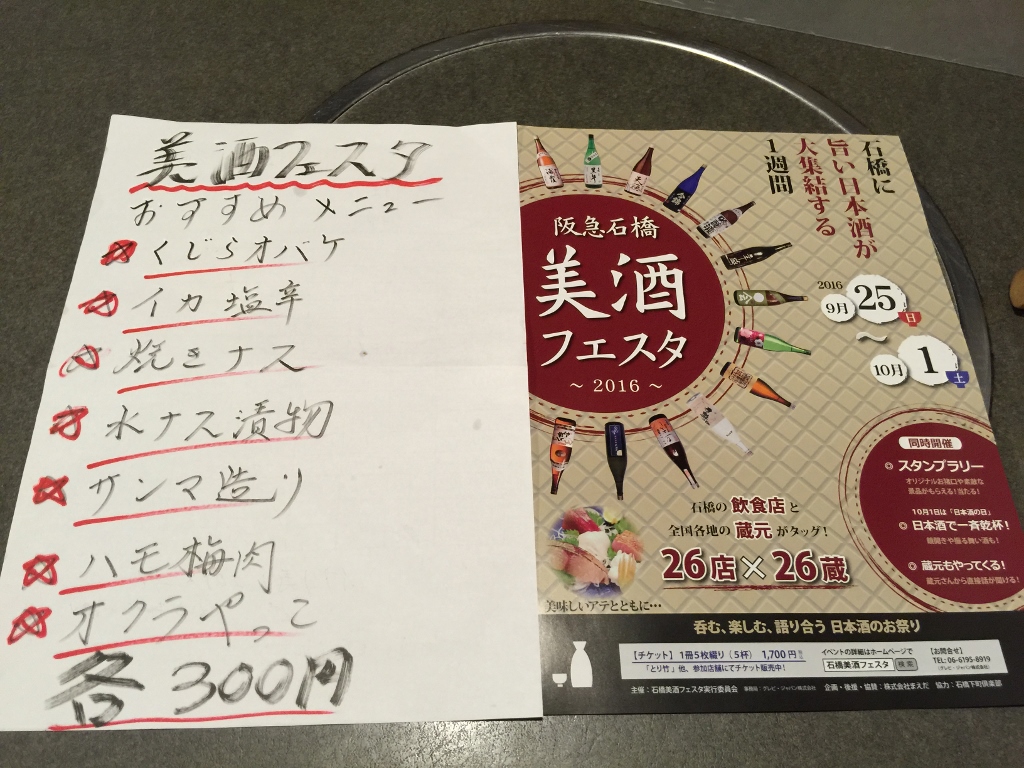 美酒フェスタ
おすすめメニュー
くじらオバケ
イカ塩辛
焼きナス
水ナス漬物
サンマ造り
ハモ梅肉
オクラやっこ
各300円
石橋に
旨い日本酒が
大集結する
1週間
阪急石橋
美酒
フェスタ
～2016～
2016
9月25日
～
10月1土
同時開催
◎スタンプラリー
オリジナルお猪口や素敵な
景品がもらえる!当たる!
10月1日は「日本酒の日」
◎日本酒で一斉乾杯!
鏡開きや振る舞い酒も!
◎蔵元もやってくる!
蔵元さんから直接話が聞ける!
石橋の飲食店と
全国各地の蔵元がタッグ!
26店×26蔵
美味しいアテとともに…
呑む、楽しむ、語り合う 日本酒のお祭り
【チケット】1冊5枚綴り(5杯) 1,700円
「とり竹」他、参加店舗にてチケット販売中!
イベントの詳細はホームページで
石橋美酒フェスタ 検索
【お問合せ】
TEL:06-6195-8919
(グレビ・ジャパン株式会社)
主催:石橋美酒フェスタ実行委員会 事務局:グレビ・ジャパン株式会社 企画・後援・協賛:株式会社まえだ 協力:石橋下町倶楽部